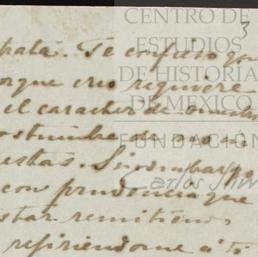 3
CENTRO DE
ESTUDIOS
DE HISTORIA
DE MEXICO
FUNDACIÓN
Carlos Slim
pata. Te confieso que
orque creo requiere
el caracter de
ostumbre de no
estas. Sin embargo,
con prudencia que
star remitiendo
refiriendome á ti